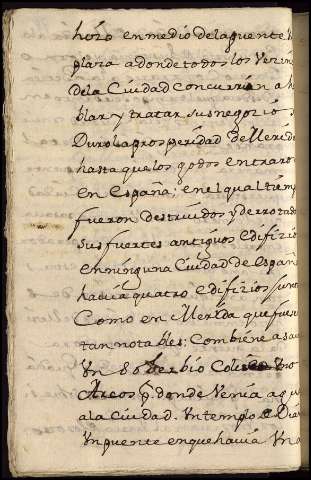 hizo en medio de la puente U
plaza a donde todos los Vezin
de la Ciudad concurrían a h
blar y tratar sus negocios
Duro la prosperidad de Merida
hasta que los godos entraro
en España; en el qual tiem
fueron destruidos y derrotado
sus fuertes antiguos edifizio
en ninguna Ciudad de España
havia quatro edifizios sumt
Como en Merida que fues
tan notables: Combiene a sau
Un Soberbio Coliseo Uno
Arcos p. donde Venia agua
a la Ciudad. Un templo a Dia
Un puente en que havia Una